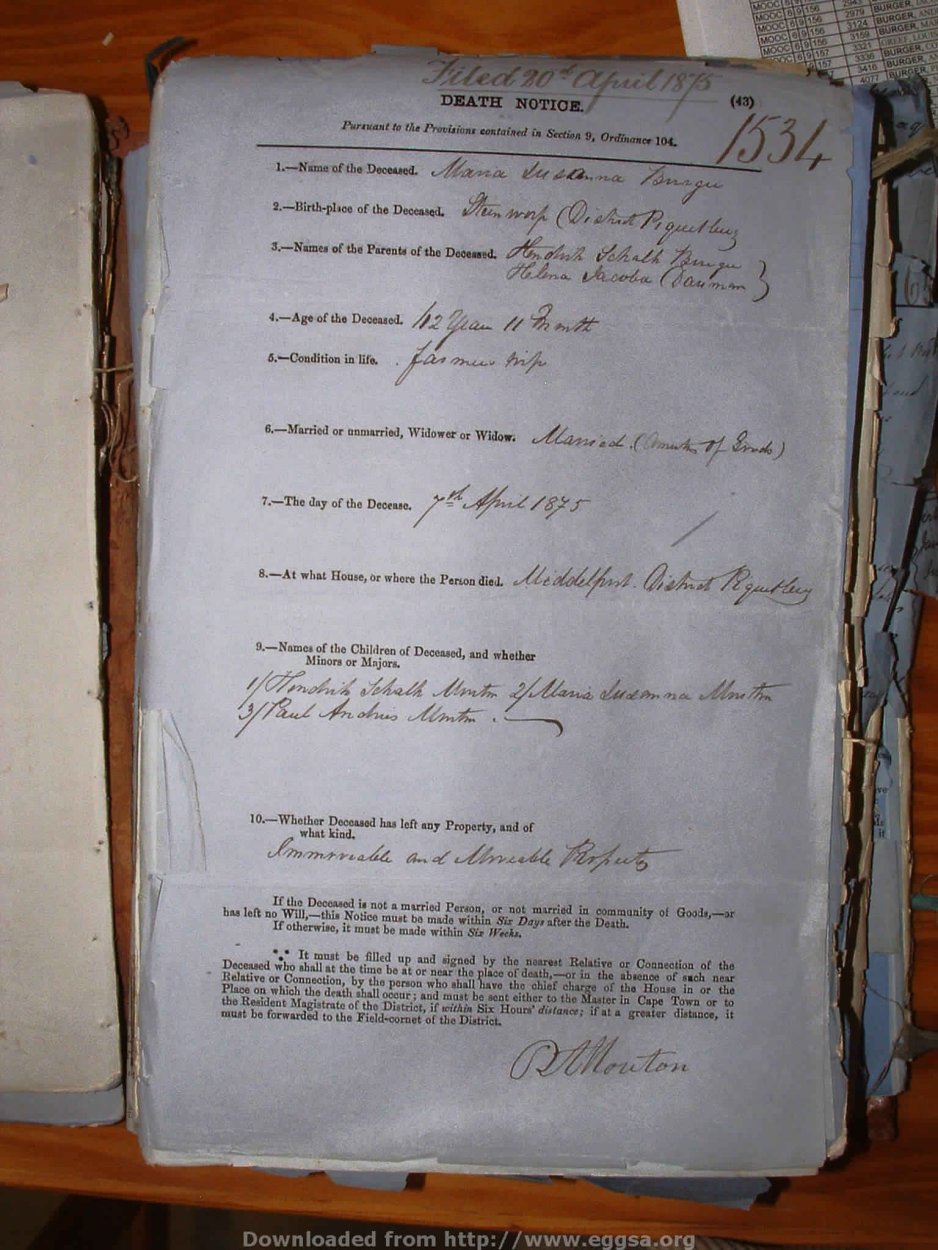 MOOC 6 9 156 2943 BURGER,
MOOC 6 9 156 2979 BURGER,
MOOC 6 9 156 3124 BURGER,
MOOC 6 9 156 3159
MOOC 6 9 156 3321 BURGER,
6 9 157 3336 BURGER,
3416 BURGER
4077
Filed 20th April 1875
DEATH NOTICE. (43)
Pursuant to the Provisions contained in Section 9, Ordinance 104.
1534
1.—Name of the Deceased. Maria Susanna Burger
2.—Birth-place of the Deceased. (District Piquetberg
3.—Names of the Parents of the Deceased. Hendrik Schalk Burger
Helena Jacoba
4.—Age of the Deceased. Year 11 Month
5.—Condition in life. farmers
6.—Married or unmarried, Widower or Widow. Married. ( of Goods)
7.—The day of the Decease. 7th April 1875
8.—At what House, or where the Person died. Middelpost. District Piquetberg
9.—Names of the Children of Deceased, and whether
Minors or Majors.
1/ Hendrik Schalk Mouton 2/ Maria Susanna Mouton
3/ Paul Andries Mouton.
10.—Whether Deceased has left any Property, and of
what kind.
Immoveable and Moveable Property
If the Deceased is not a married Person, or not married in community of Goods,—or
has left no Will,—this Notice must be made within Six Days after the Death.
If otherwise, it must be made within Six Weeks.
It must be filled up and signed by the nearest Relative or Connection of the
Deceased who shall at the time be at or near the place of death,—or in the absence of such near
Relative or Connection, by the person who shall have the chief charge of the House in or the
Place on which the death shall occur; and must be sent either to the Master in Cape Town or to
the Resident Magistrate of the District, if within Six Hours' distance; if at a greater distance, it
must be forwarded to the Field-cornet of the District.
Mouton
Downloaded from http://www.eggsa.org